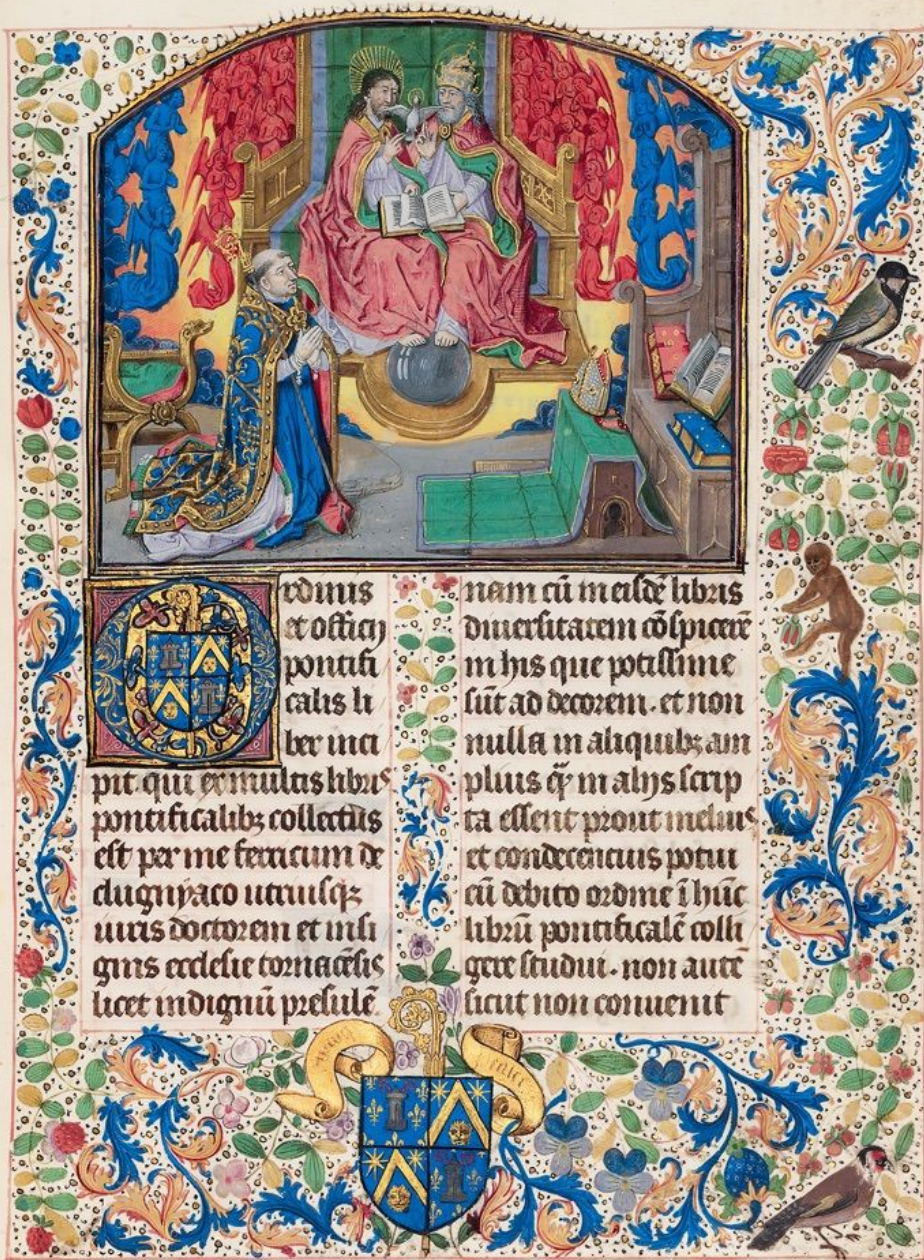 Ordinis
et officij
pontifi
calis li
ber inci
pit. qui ex multis libris
pontificalibꝫ collectus
est per me ferricum de
clugnyaco utriusqꝫ
iuris doctorem et insi
gnis ecclesie tornacēsis
licet indignū presulē
nam cū in eisdē libris
diuersitatem cōspicerē
in his que potissime
sūt ad decorem. et non
nulla in aliquibꝫ am
plius qꝫ in alijs scrip
ta essent prout melius
et condecencius potui
cū debito ordine ī hūc
librū pontificalē colli
gere studui. non autē
sicut non conuenit